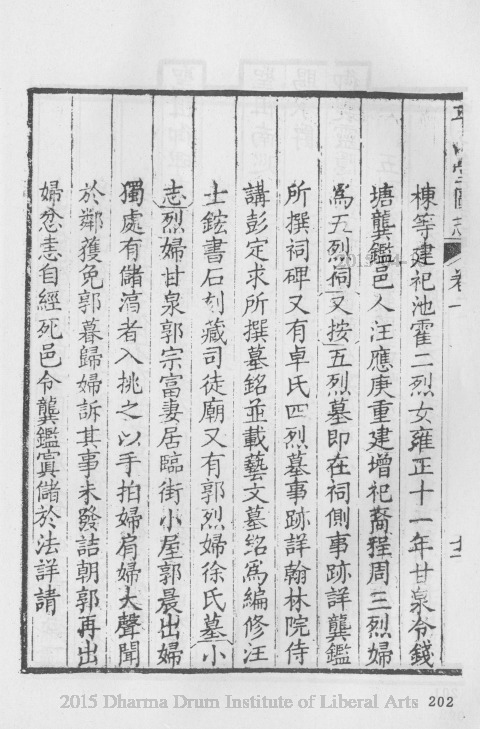 平山堂圖志 卷一 十二
棟等建祀池霍二烈女雍正十一年甘泉令錢
塘龔鑑邑人汪應庚重建增祀裔程周三烈婦
為五烈祠又按五烈墓即在祠側事跡詳龔鑑
所撰祠碑又有卓氏四烈墓事跡詳翰林院侍
講彭定求所撰墓銘並載藝文墓銘為編修汪
士鋐書石刻藏司徒廟又有郭烈婦徐氏墓小
志烈婦甘泉郭宗富妻居臨街小屋郭晨出婦
獨處有儲濇者入挑之以手拍婦肩婦大聲聞
於鄰獲免郭暮歸婦訴其事未發詰朝郭再出
婦忿恚自經死邑令龔鑑寘儲於法詳請
2015 Dharma Drum Institute of Liberal Arts 202